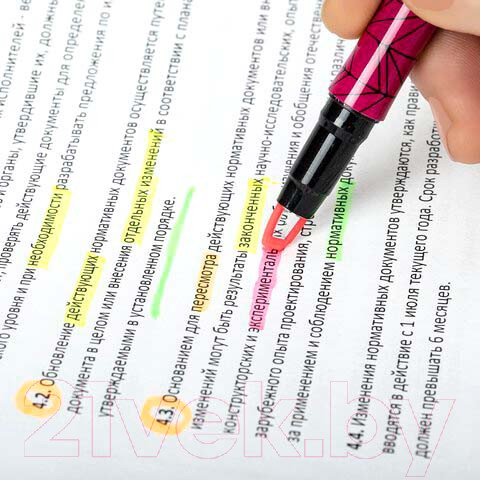 исполнителей - ве
и органы, утвердившие их, должны
проверять действующие документы для определе
ного уровня и при необходимости разрабатывать предложения по и
4.2. Обновление действующих нормативных документов осуществляется путе
документа в целом или внесения отдельных изменений в соответствии с плана
утверждаемыми в установленном порядке.
4.3. Основанием для пересмотра действующих нормативных документов или вн
изменений могут быть результаты законченных научно-исследовательских, опыт
конструкторских и эксперименталь ых ра
зарубежного опыта проектирования, стр ния и обобщения отечестве
за применением и соблюдением нормативных доку различ
4.4. Изменения нормативных документов утверждаются, как прави
вводятся в действие с 1 июля текущего года. Срок разработ
должен превышать 6 месяцев.
21vek.by